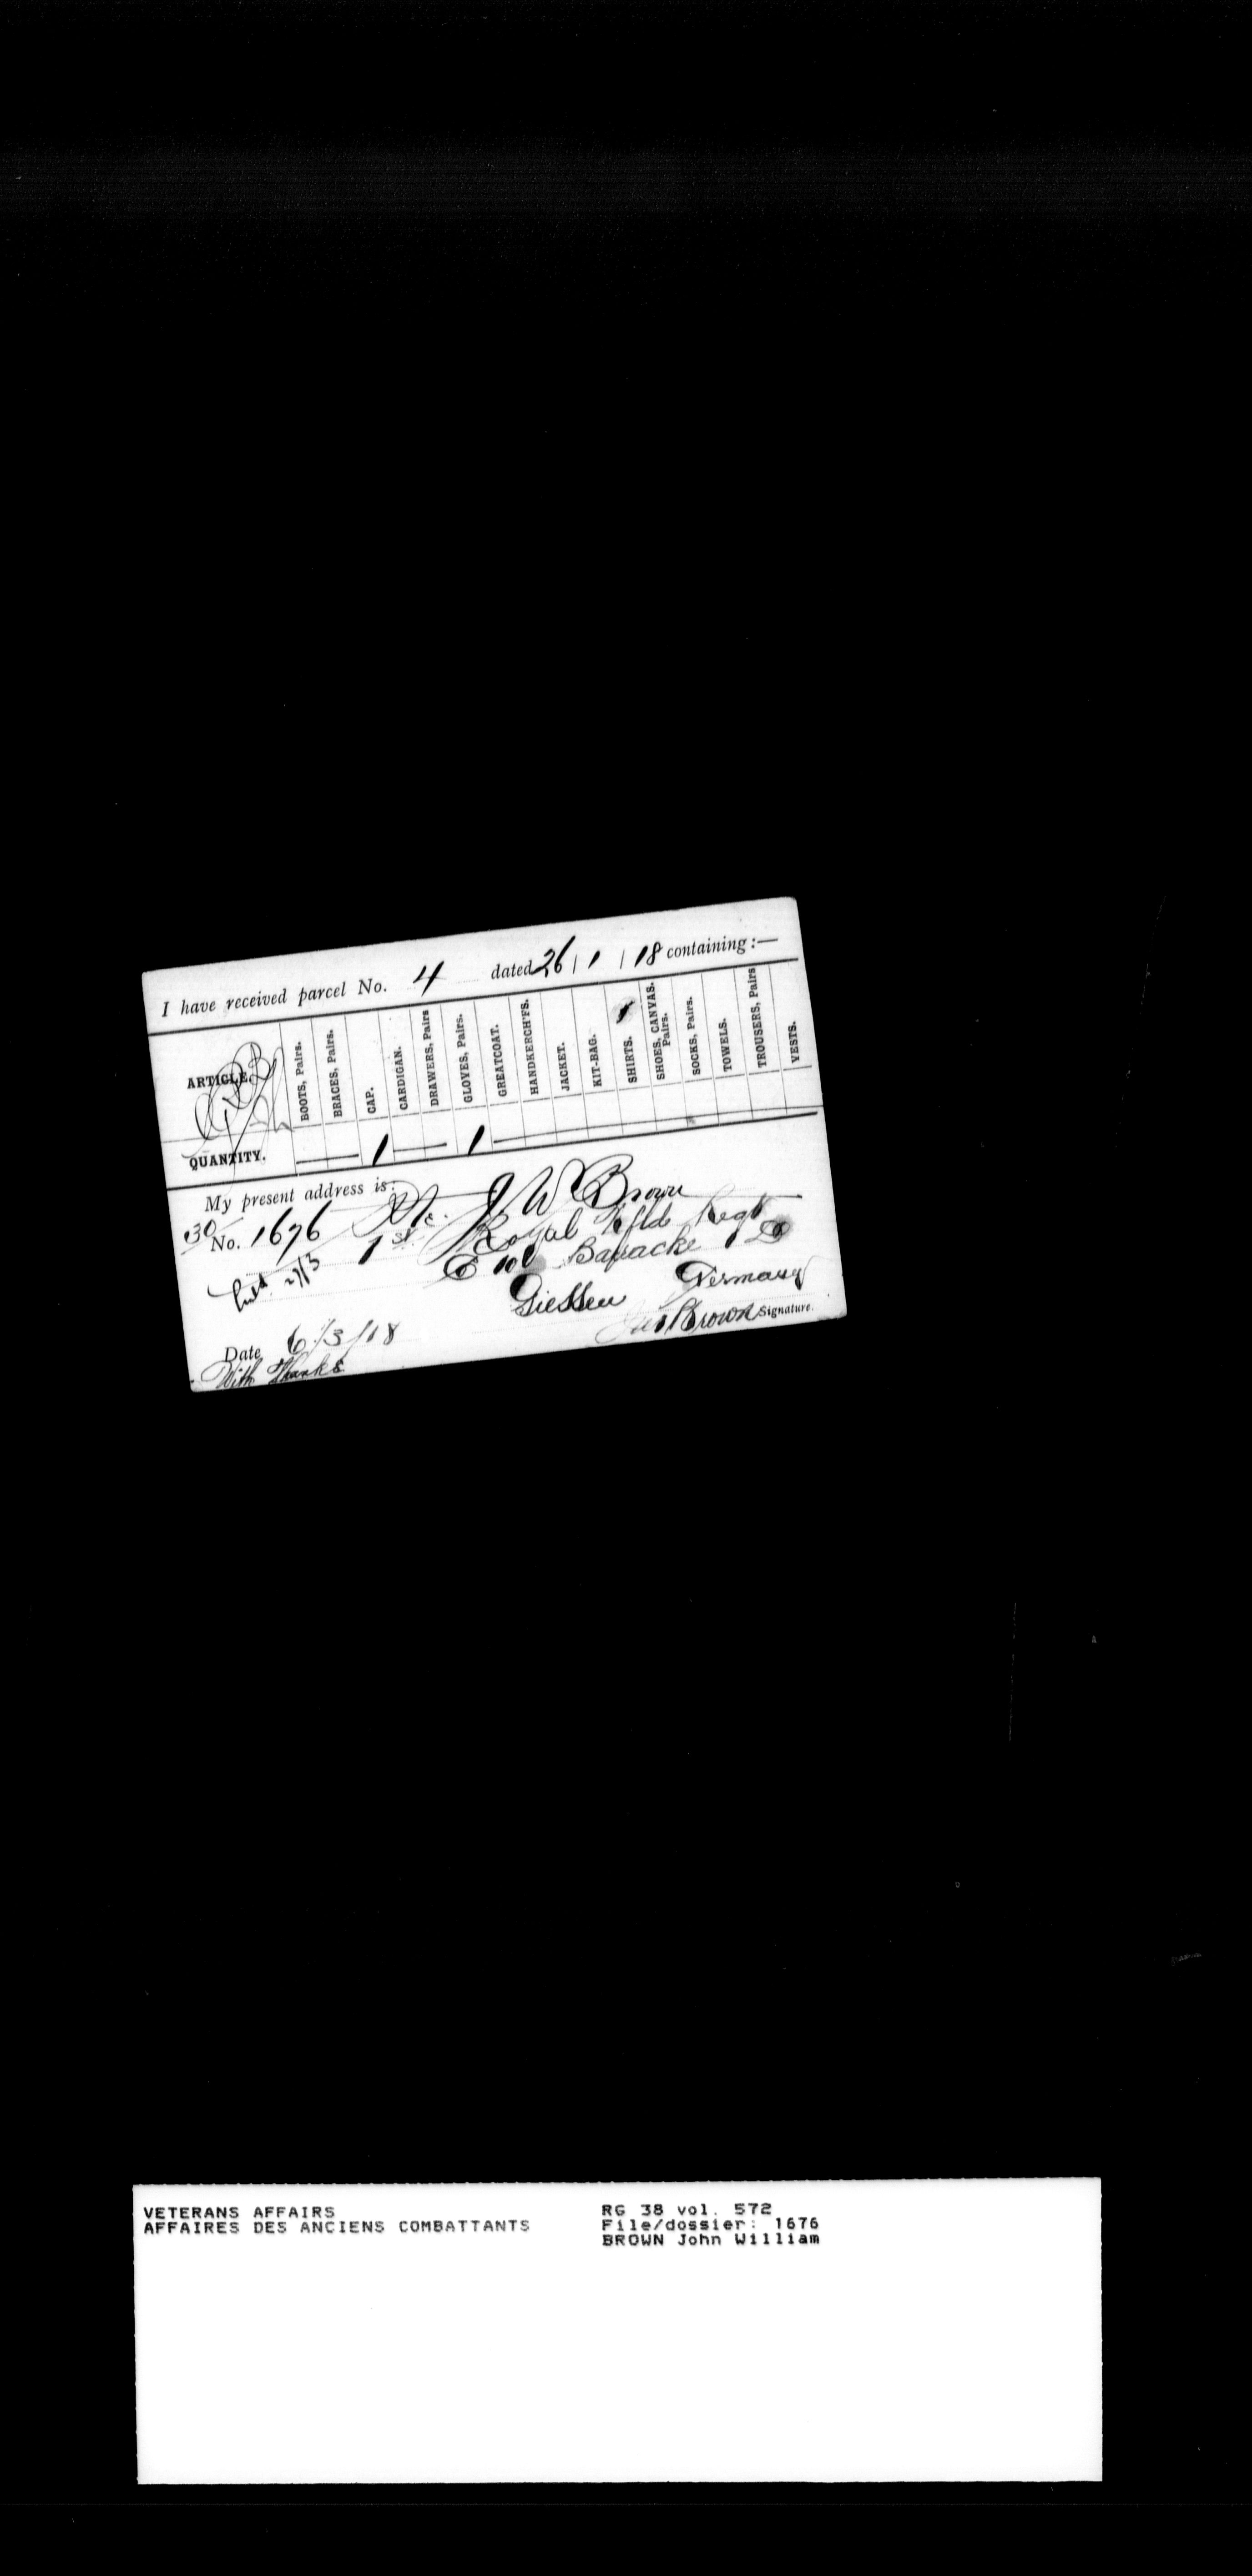 I have received parcel No. 4 dated 26 | 1 | 18 containing :—
ARTICLE. BOOTS, Pairs. BRACES, Pairs. CAP. CARDIGAN. DRAWERS, Pairs GLOVES, Pairs. GREATCOAT. HANDKERCH'FS. JACKET. KIT-BAG. SHIRTS. SHOES, CANVAS. Pairs. SOCKS, Pairs. TOWELS. TROUSERS, Pairs VESTS.
QUANTITY. — 1 — 1 —
My present address is:
130 No. 1676 Pte. J W Brown
1st. Royal Nfld Regt
Baracke
2/3
Giessen Germany
Brown Signature.
Date 6/3/18
With Thanks
VETERANS AFFAIRS
AFFAIRES DES ANCIENS COMBATTANTS
RG 38 vol. 572
File/dossier: 1676
BROWN John William